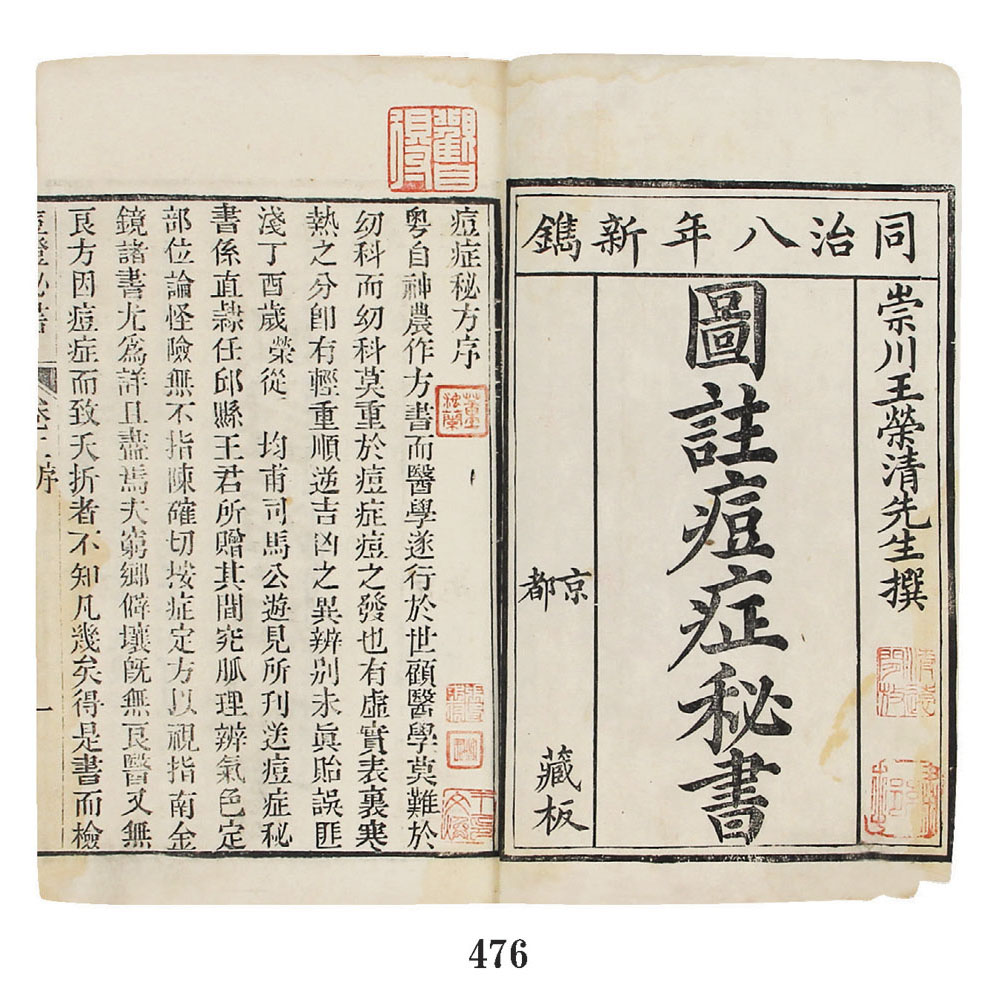 同治八年新鐫
崇川王榮清先生撰
圖註痘症秘書
京都
藏板
痘症秘方序
粵自神農作方書而醫學遂行於世顧醫學莫難於
幼科而幼科莫重於痘症痘之發也有虛實表裏寒
熱之分卽有輕重順逆吉凶之異辨别未眞貽誤匪
淺丁酉歲 榮從 均甫司馬公遊見所刊送痘症秘
書係直隷任邱縣王君所贈其間究脈理辨氣色定
部位論怪險無不指陳確切按症定方以視指南金
鏡諸書尤爲詳且盡焉夫窮鄉僻壤旣無良醫又無
良方因痘症而致夭折者不知凡幾矣得是書而檢
痘證秘書
卷上序
一
476